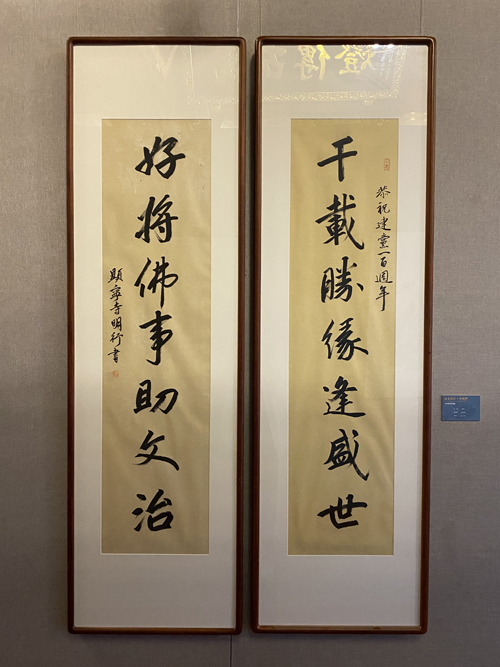 千載勝緣逢盛世
恭祝建黨一百週年
好將佛事助文治
顯寧寺明行書